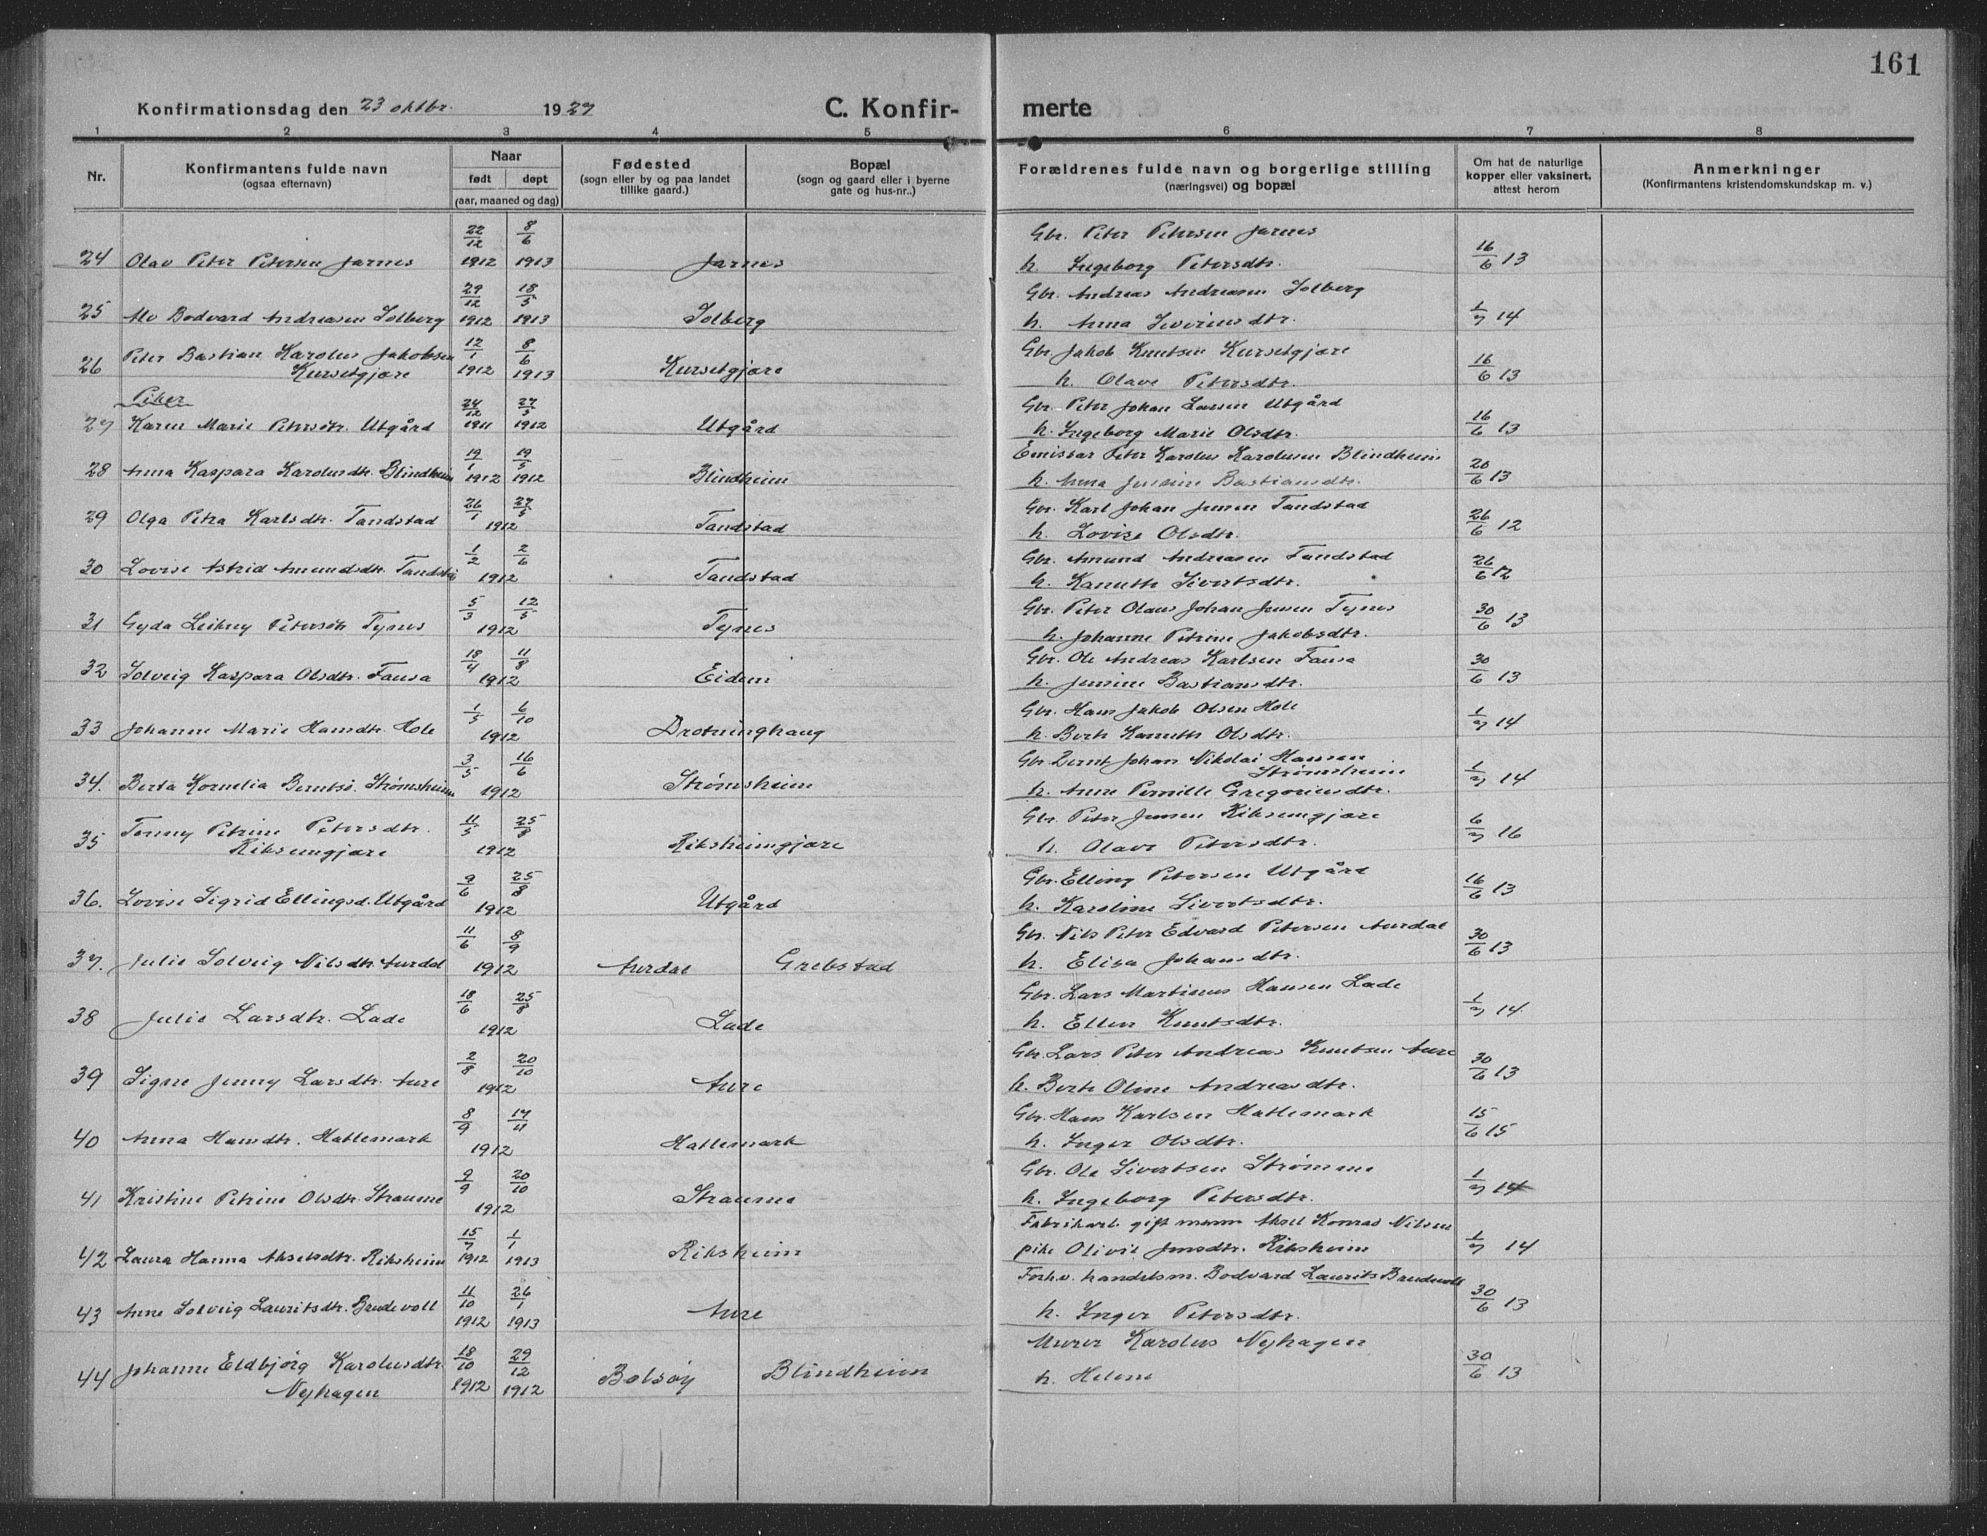 161
Konfirmationsdag den 23 oktbr. 1927 C. Konfir- merte
1 2 3 4 5 6 7 8
Nr. Konfirmantens fulde navn (ogsaa efternavn) Naar født døpt (aar, maaned og dag) Fødested (sogn eller by og paa landet tillike gaard.) Bopæl (sogn og gaard eller i byerne gate og hus-nr..) Forældrenes fulde navn og borgerlige stilling (næringsvei) og bopæl Om hat de naturlige kopper eller vaksinert, attest herom Anmerkninger (Konfirmantens kristendomskundskap m. v.)
22/12 8/6 Gbr. Peter Petersen Jarnes
24 Olav Peter Petersen Jarnes 1912 1913 Jarnes h. Ingeborg Petersdtr. 16/6 13
29/12 18/5 Gbr. Andreas Andreasen Solberg
25 Alv Bodvard Andreasen Solberg 1912 1913 Solberg h. Anna Severinsdtr. 1/7 14
Peter Bastian Karolus Jakobsen 12/1 8/6 Gbr. Jakob Knutsen Kursetgjære
26 Kursetgjære 1912 1913 Kursetgjære h. Olave Petersdtr. 16/6 13
Piker 24/12 27/5 Gbr. Peter Johan Larsen Utgård
27 Karen Marie Petersdtr. Utgård 1911 1912 Utgård h. Ingeborg Marie Olsdtr. 16/6 13
19/1 19/5 Emissær Peter Karolus Karolusen Blindheim
28 Anna Kaspara Karolusdtr. Blindheim 1912 1912 Blindheim h. Anna Jensine Bastiansdtr. 20/6 13
26/1 27/5 Gbr. Karl Johan Jensen Tandstad
29 Olga Petra Karlsdtr. Tandstad 1912 Tandstad h. Lovise Olsdtr. 26/6 12
1/2 2/6 Gbr. Amund Andreasen Tandstad
30 Lovise Astrid Amundsdtr. Tandsta 1912 Tandstad h. Kanutte Sivertsdtr. 26/6 12
5/3 12/5 Gbr. Peter Olaus Johan Jensen Tynes
31 Gyda Leikny Petersdtr Tynes 1912 Tynes h. Johanne Petrine Jakobsdtr. 30/6 13
18/4 11/8 Gbr. Ole Andreas Karlsen Fausa
32 Solveig Kaspara Olsdtr. Fausa 1912 Eidem h. Jensine Bastiansdtr. 30/6 13
1/5 6/10 Gbr. Hans Jakob Olsen Hole
33 Johanne Marie Hansdtr Hole 1912 Drotninghaug h. Berte Kanutte Olsdtr. 1/7 14
3/5 16/6 Gbr. Bernt Johan Nikolai Hansen Strømsheim
34. Berta Kornelia Berntsd. Strømsheim 1912 Strømsheim h. Anne Pernille Gregoriusdtr. 1/7 14
Tenny Petrine Petersdtr. 11/5 25/8 Gbr. Peter Jensen Riksemgjære
35 Riksemgjære 1912 Riksheimgjære h. Olave Petersdtr. 6/7 16
9/6 25/8 Gbr. Elling Petersen Utgård
36. Lovise Sigrid Ellingsd. Utgård 1912 Utgård h. Karoline Sivertsdtr. 16/6 13
11/6 8/9 Gbr. Nils Peter Edvard Petersen Aurdal
37. Julie Solveig Nilsdtr. Aurdal 1912 Aurdal Grebstad h. Elisa Johansdtr. 30/6 13
18/6 25/8 Gbr. Lars Martinus Hansen Lade
38 Julie Larsdtr. Lade 1912 Lade h. Ellen Knutsdtr. 1/7 14
2/8 20/10 Gbr. Lars Peter Andreas Knutsen Aure
39 Signe Jenny Larsdtr. Aure 1912 Aure h. Berte Oline Andreasdtr. 30/6 13
8/9 17/11 Gbr. Hans Karlsen Hatlemark
40 Anna Hansdtr. Hatlemark 1912 Hatlemark h. Inger Olsdtr. 15/6 15
9/9 20/10 Gbr. Ole Sivertsen Strømme
41 Kristine Petrine Olsdtr. Straume 1912 Straume h. Ingeborg Petersdtr. 1/7 14
15/7 1/1 Fabrikarb. gift mann Aksel Konrad Nilsen
42 Laura Hanna Akselsdtr. Riksheim 1912 1913 Riksheim pike Olivie Jensdtr. Riksheim 1/7 14
11/10 26/1 Forh.v. handelsm. Bodvard Laurits Brudevoll
43 Anne Solveig Lauritsdtr. Brudevoll 1912 1913 Aure h. Inger Petersdtr. 30/6 13
Johanne Eldbjørg Karolusdtr. 18/10 29/12 Murer Karolus Nyhagen
44 Nyhagen 1912 1912 Bolsøy Blindheim h. Helene 30/6 13